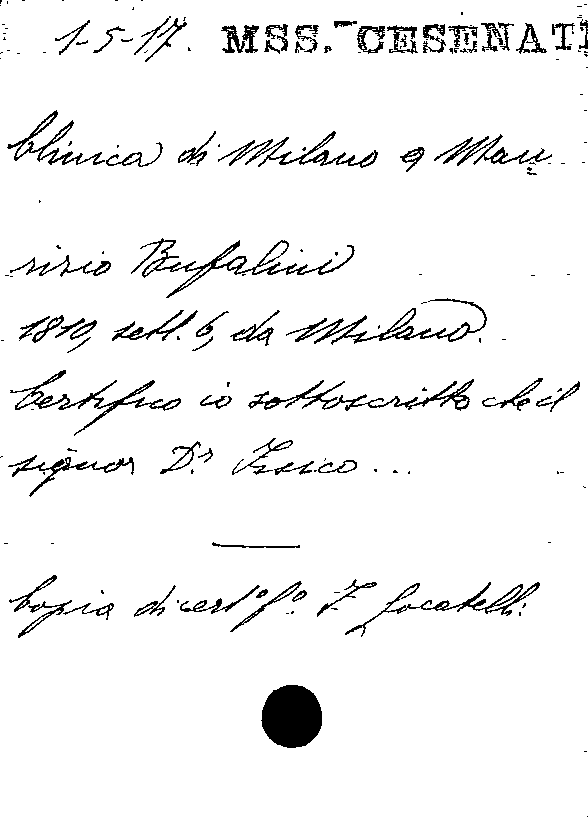 1-5-17. MSS. CESENATI
Clinica di Milano a Mau
rizio Bufalini
1810, sett. 6, da Milano.
Certifico io sottoscritto che il
signor D.r Fisico ...
Copia di cert.o f.o F Locatelli.